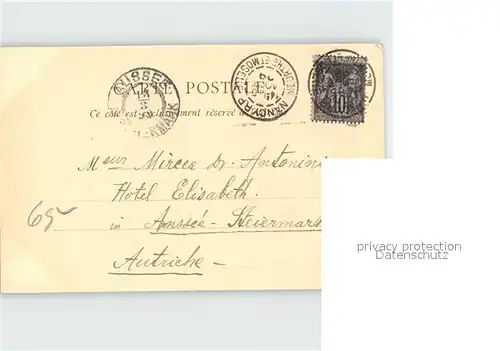 CARTE POSTALE
Ce côté est exclusivement réservé à
NANCY
MEURTHE ET MOSELLE
10
Meur Mircea Dr. Antonini
Hotel Elisabeth.
in Aussée - Steiermark
Autriche -
65
privacy protection
Datenschutz